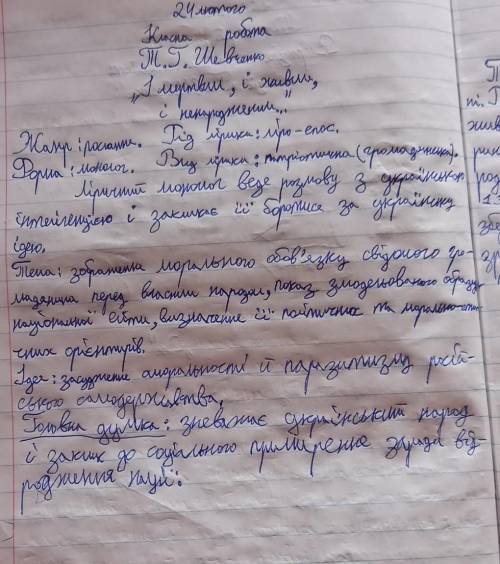 24 лютого
Класна робота
Т. Г. Шевченко
„І мертвим, і живим,
і ненародженим..."
Жанр: послання. Рід лірики: ліро-епос.
Форма: монолог. Вид лірики: патріотична (громадянська).
Ліричний монолог веде розмову з українською
інтелігенцією і закликає її боротися за українську
ідею.
Тема: зображення морального обов'язку свідомого гро-
мадянина перед власним народом, показ змодельованого образу
національної еліти, визначення її політичних та морально-эти-
чних орієнтирів.
Ідея: засудження аморальності й паразитизму росій-
ського самодержавства.
Головна думка: зневажає український народ
і заклик до соціального примирення заради від-
родження нації.
П
т. Г
жив
рик
роз
зве